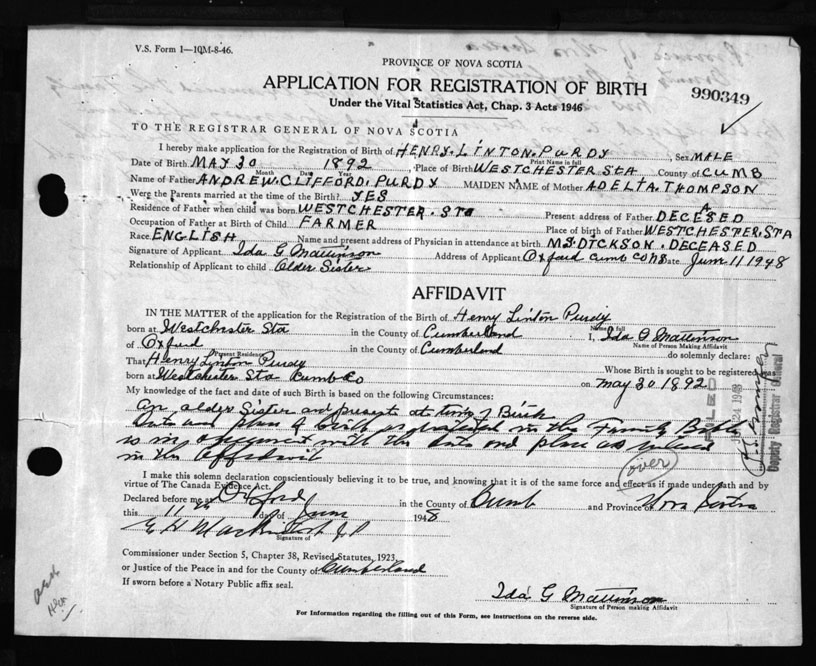 V.S. Form 1—10M-8-46.
PROVINCE OF NOVA SCOTIA
APPLICATION FOR REGISTRATION OF BIRTH
990349
Under the Vital Statistics Act, Chap. 3 Acts 1946
TO THE REGISTRAR GENERAL OF NOVA SCOTIA
I hereby make application for the Registration of Birth of HENRY. LINTON. PURDY, Sex MALE
Print Name in full
Date of Birth MAY 30, 1892, Place of Birth WESTCHESTER STA County of CUMB
Month Date Year
Name of Father ANDREW. CLIFFORD. PURDY MAIDEN NAME of Mother ADELIA. THOMPSON
Were the Parents married at the time of the Birth? YES
Residence of Father when child was born WESTCHESTER. STA Present address of Father DECEASED
Occupation of Father at Birth of Child FARMER Place of birth of Father WESTCHESTER. STA
Race ENGLISH Name and present address of Physician in attendance at birth M.S. DICKSON. DECEASED
Signature of Applicant Ida G Mattinson Address of Applicant Oxford Cumb Co NS Date June 11 1948
Relationship of Applicant to child Older Sister
AFFIDAVIT
IN THE MATTER of the application for the Registration of the Birth of Henry Linton Purdy
born at Westchester Sta in the County of Cumberland I, Ida G Mattinson
Name in full
Name of Person Making Affidavit
of Oxford in the County of Cumberland do solemnly declare:
Present Residence
That Henry Linton Purdy Whose Birth is sought to be registered was
born at Westchester Sta Cumb Co on May 30 1892
My knowledge of the fact and date of such Birth is based on the following Circumstances:
An older Sister and present at time of Birth
Date and place of birth as in the Family Bible
is in agreement with the date and place as
in the Affidavit
(over)
FILED
24 1948
Deputy Registrar General
I make this solemn declaration conscientiously believing it to be true, and knowing that it is of the same force and effect as if made under oath and by
virtue of The Canada Evidence Act.
Declared before me at Oxford in the County of Cumb and Province of Nova Scotia
this 11th day of June 1948
E H Mackintosh J P
Signature of
Commissioner under Section 5, Chapter 38, Revised Statutes, 1923,
or Justice of the Peace in and for the County of Cumberland
If sworn before a Notary Public affix seal.
Ida G Mattinson
Signature of Person making Affidavit
For Information regarding the filling out of this Form, see instructions on the reverse side.